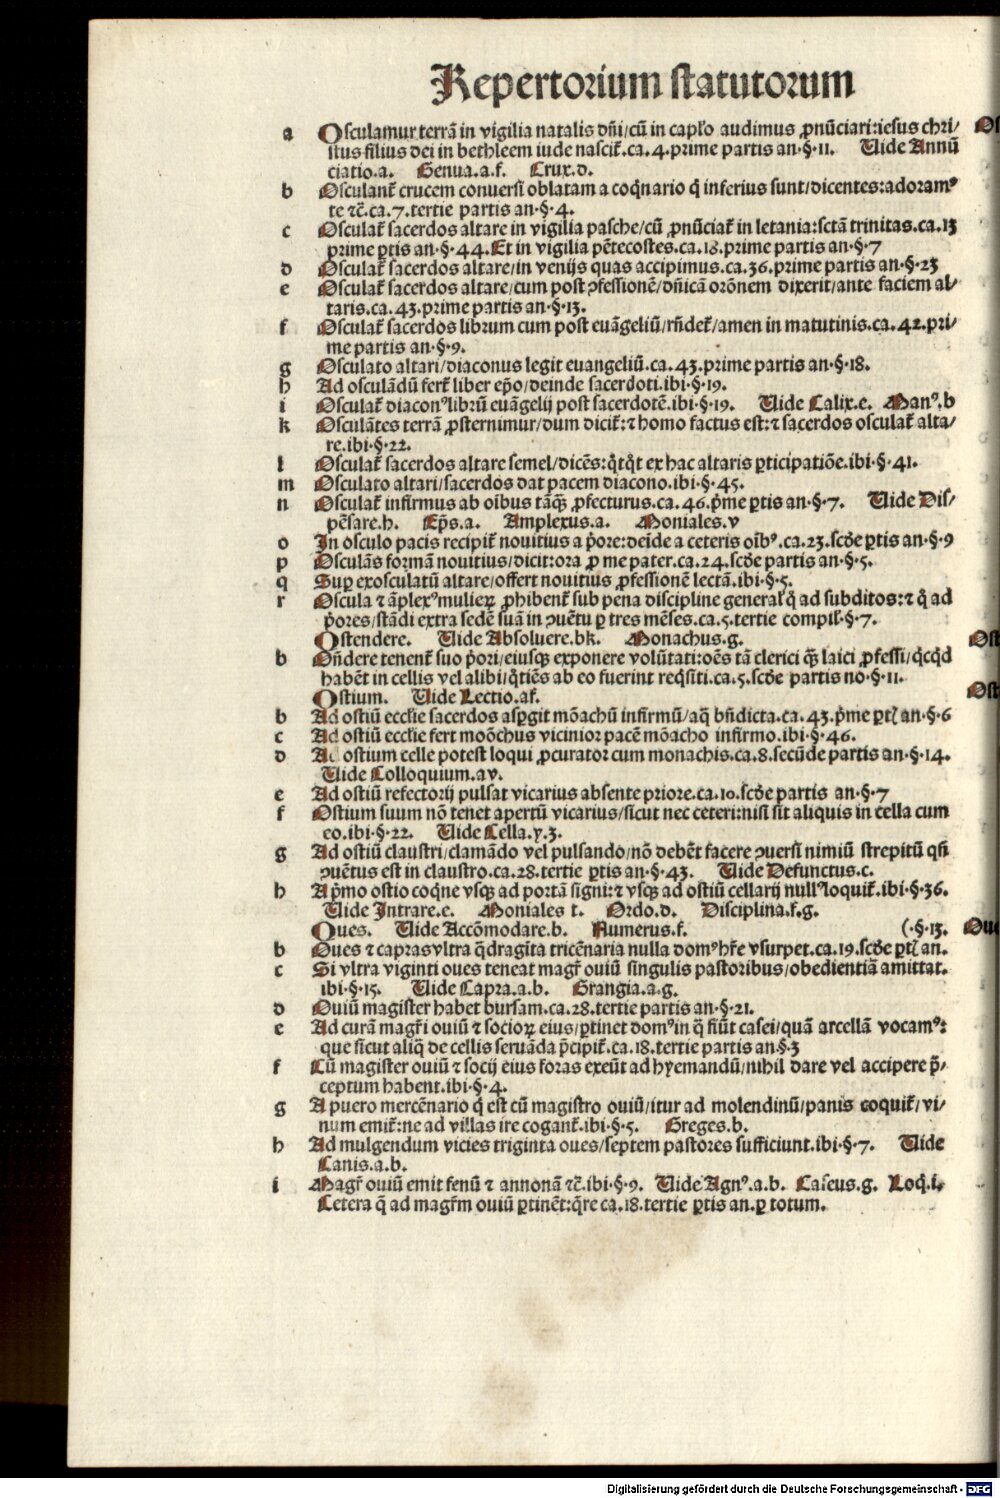 Repertorium statutorum
a Osculamur terrā in vigilia natalis dñi/cū in caplo audimus ꝓnūciari:iesus chri/
stus filius dei in bethleem iude nascit̄.ca.4.prime partis an.§.11. Uide Annū
ciatio.a. Genua.a.f. Crux.d.
b Osculant̄ crucem conuersi oblatam a coqnario q̇ inferius sunt/dicentes:adoramꝰ
te ⁊c̄.ca.7.tertie partis an.§.4.
c Osculat̄ sacerdos altare in vigilia pasche/cū ꝓnūciat̄ in letania:sctā trinitas.ca.13
prime ꝑtis an.§.44.Et in vigilia pētecostes.ca.18.prime partis an.§.7
d Osculat̄ sacerdos altare/in venijs quas accipimus.ca.36.prime partis an.§.23
e Osculat̄ sacerdos altare/cum post ꝯfessionē/dñicā orōnem dixerit/ante faciem al/
taris.ca.43.prime partis an.§.13.
f Osculat̄ sacerdos librum cum post euāgeliū/rñdet̄/amen in matutinis.ca.42.pri/
me partis an.§.9.
g Osculato altari/diaconus legit euangeliū.ca.43.prime partis an.§.18.
h Ad osculādū fert̄ liber ep̄o/deinde sacerdoti.ibi.§.19.
i Osculat̄ diaconꝰ librū euāgelij post sacerdotē.ibi.§.19. Uide Calix.e. Manꝰ.b
k Osculātes terrā ꝓsternimur/dum dicit̄:⁊ homo factus est:⁊ sacerdos osculat̄ alta/
re.ibi.§.22.
l Osculat̄ sacerdos altare semel/dicēs:q̇tq̇t ex hac altaris ꝑticipatiōe.ibi.§.41.
m Osculato altari/sacerdos dat pacem diacono.ibi.§.45.
n Osculat̄ infirmus ab oībus tāꝙ̄ ꝓfecturus.ca.46.p̄me ꝑtis an.§.7. Uide Dis/
pēsare.h. Ep̄s.a. Amplexus.a. Moniales.v
o In osculo pacis recipit̄ nouitius a p̄ore:deīde a ceteris oībꝰ.ca.23.scd̄e ꝑtis an.§.9
p Osculās formā nouitius/dicit:ora ꝓ me pater.ca.24.scd̄e partis an.§.5.
q Suꝑ exosculatū altare/offert nouitius ꝓfessionē lectā.ibi.§.5.
r Oscula ⁊ āplexꝰ mulieꝝ ꝓhibent̄ sub pena discipline generalꝭ q̄ ad subditos:⁊ q̄ ad
p̄ores/stādi extra sedē suā in ꝯuētu ꝑ tres mēses.ca.5.tertie compil.§.7.
Ostendere. Uide Absoluere.bk. Monachus.g.
b Oñdere tenent̄ suo p̄ori/eiusꝙ exponere volūtati:oēs tā clerici ꝙ̄ laici ꝓfessi/q̇cq̇d
habēt in cellis vel alibi/q̇tiēs ab eo fuerint reqsiti.ca.5.scd̄e partis no.§.11.
Ostium. Uide Lectio.af.
b Ad ostiū ecclie sacerdos asꝑgit mōachū infirmū/aq̄ bñdicta.ca.43.p̄me ꝑtꝭ an.§.6
c Ad ostiū ecclie fert moōchus vicinior pacē mōacho infirmo.ibi.§.46.
d Ad ostium celle potest loqui ꝓcurator cum monachis.ca.8.secūde partis an.§.14.
Uide Colloquium.av.
e Ad ostiū refectorij pulsat vicarius absente priore.ca.10.scd̄e partis an.§.7
f Ostium suum nō tenet apertū vicarius/sicut nec ceteri:nisi sit aliquis in cella cum
eo.ibi.§.22. Uide Cella.y.3.
g Ad ostiū claustri/clamādo vel pulsando/nō debēt facere ꝯuersi nimiū strepitū qn̄
ꝯuētus est in claustro.ca.28.tertie ꝑtis an.§.43. Uide Defunctus.c.
h A p̄mo ostio coqne vsꝙ ad portā signi:⁊ vsꝙ ad ostiū cellarij nullꝰ loquit̄.ibi.§.36.
Uide Intrare.e. Moniales t. Ordo.d. Disciplina.f.g.
Oues. Uide Accōmodare.b. Numerus.f. (.§.13.
b Oues ⁊ capras vltra q̄dragīta tricēnaria nulla domꝰ hr̄e vsurpet.ca.19.scd̄e ꝑtꝭ an.
c Si vltra viginti oues teneat magr̄ ouiū singulis pastoribus/obedientiā amittat.
ibi.§.15. Uide Capra.a.b. Grangia.a.g.
d Ouiū magister habet bursam.ca.28.tertie partis an.§.21.
e Ad curā magr̄i ouiū ⁊ socioꝝ eius/ꝑtinet domꝰ in q̄ fiūt casei/quā arcellā vocamꝰ:
que sicut aliq̄ de cellis seruāda p̄cipit̄.ca.18.tertie partis an.§.3
f Cū magister ouiū ⁊ socij eius foras exeūt ad hyemandū/nihil dare vel accipere p̄/
ceptum habent.ibi.§.4.
g A puero mercēnario q̇ est cū magistro ouiū/itur ad molendinū/panis coquit̄/vi/
num emit̄:ne ad villas ire cogant̄.ibi.§.5. Greges.b.
h Ad mulgendum vicies triginta oues/septem pastores sufficiunt.ibi.§.7. Uide
Canis.a.b.
i Magr̄ ouiū emit fenū ⁊ annonā ⁊c̄.ibi.§.9. Uide Agnꝰ.a.b. Caseus.g. Loq̇.i.
Cetera q̄ ad magr̄m ouiū ꝑtinēt:q̄re ca.18.tertie ꝑtis an.ꝑ totum.
Digitalisierung gefördert durch die Deutsche Forschungsgemeinschaft - DFG